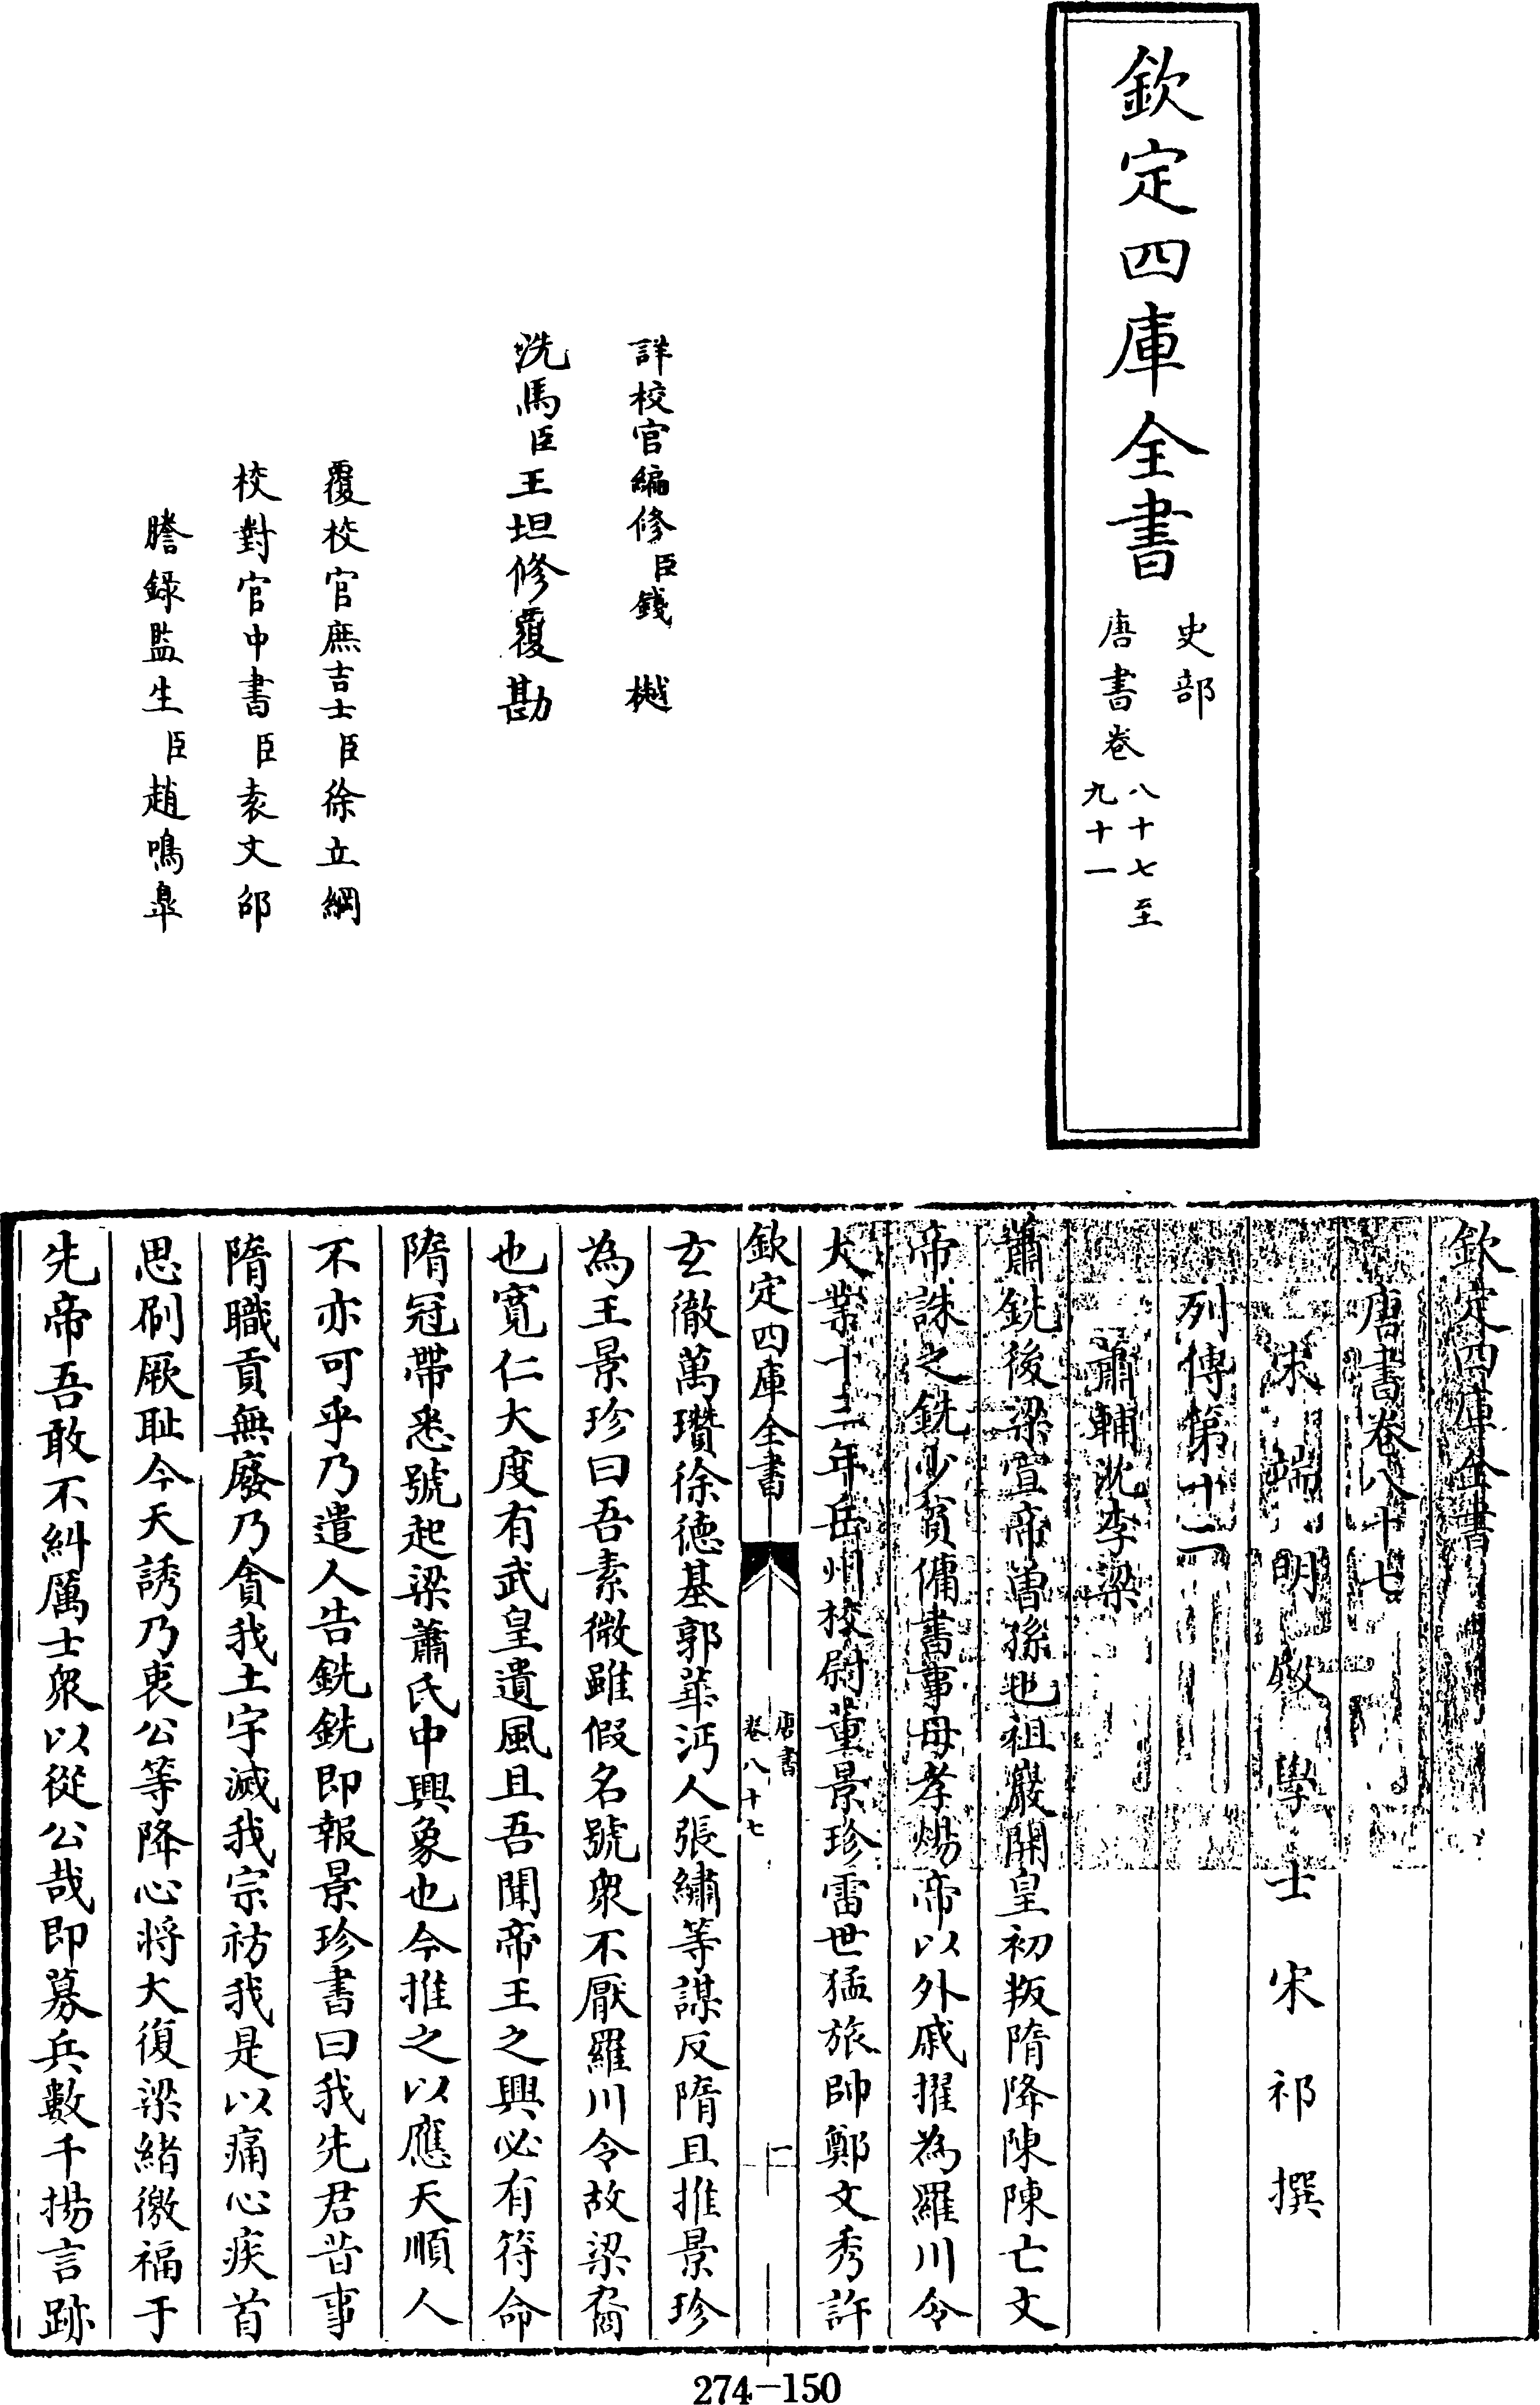 欽定四庫全書
史部
唐書卷八十七至
九十一
詳校官編修臣錢樾
洗馬臣王坦修覆勘
覆校官庶吉士臣徐立綱
校對官中書臣袁文邵
謄錄監生臣趙鳴臯
欽定四庫全書
唐書卷八十七
宋端明殿學士宋祁撰
列傳第十二
蕭輔沈李梁
蕭銑後梁宣帝曾孫也祖巖開皇初叛隋降陳陳亡文
帝誅之銑少貧傭書事母孝煬帝以外戚擢為羅川令
大業十三年岳州校尉董景珍雷世猛旅帥鄭文秀許
欽定四庫全書
唐書
卷八十七
一
玄徹萬瓚徐德基郭華沔人張繡等謀反隋且推景珍
為王景珍曰吾素微雖假名號衆不厭羅川令故梁裔
也寬仁大度有武皇遺風且吾聞帝王之興必有符命
隋冠帶悉號起梁蕭氏中興象也今推之以應天順人
不亦可乎乃遣人告銑銑即報景珍書曰我先君昔事
隋職貢無廢乃貪我土宇滅我宗祊我是以痛心疾首
思刷厥耻今天誘乃衷公等降心將大復梁緒徼福于
先帝吾敢不糾厲士衆以從公哉即募兵數千揚言跡
274-150